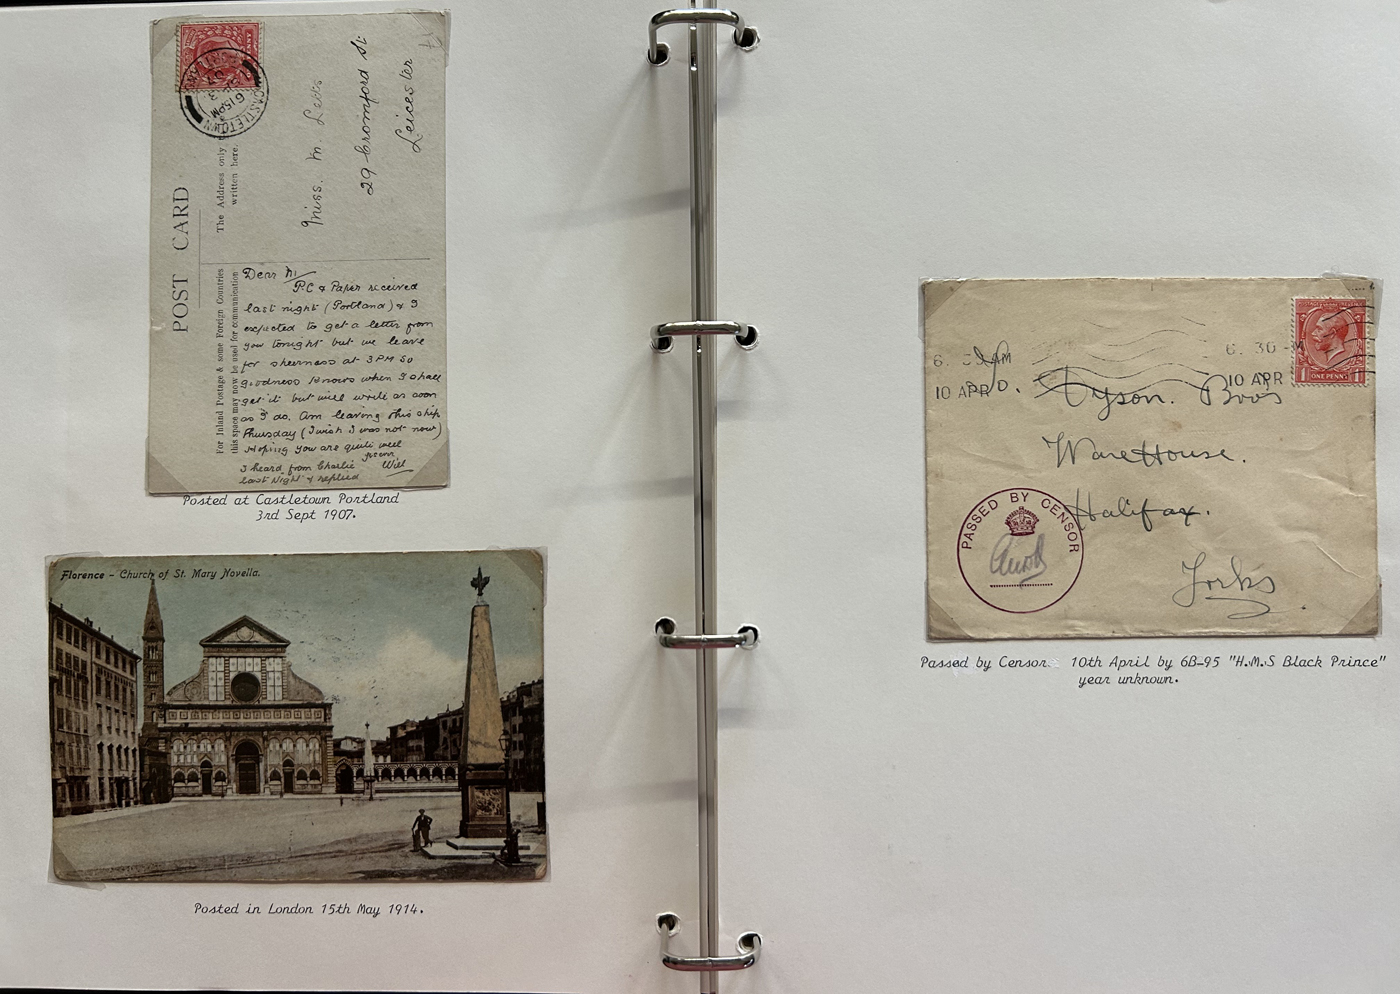 POST CARD
The Address only
written here.
For Inland Postage & some Foreign Countries
this space may now be used for communication
CASTLETOWN
6 15PM
Miss. M.
29 Cromford St
Leicester
Dear M
P.C & Paper received
last night (Portland) & I
expected to get a letter from
you tonight but we leave
for sheerness at 3 PM so
goodness knows when I shall
get it but will write as soon
as I do. Am leaving this ship
Thursday (I wish I was not now)
Hoping you are quite well
I heard from Charlie
Will
last Night & replied
Posted at Castletown Portland
3rd Sept 1907.
Florence - Church of St. Mary Novella.
Posted in London 15th May 1914.
10 APR
10 APR
ONE PENNY
Dyson. Bros
WareHouse.
Halifax.
Yorks
PASSED BY CENSOR
Passed by Censor. 10th April by 6B-95 "H.M.S Black Prince"
year unknown.